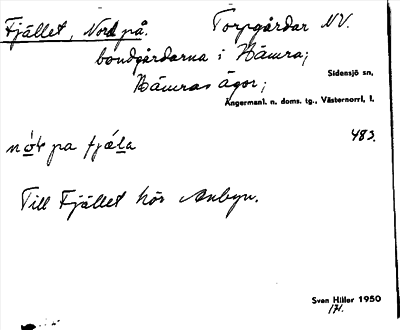 Fjället, Nord på. Torpgårdar NV.
bondgårdarna i Bämra;
Bämras ägor;
Sidensjö sn,
Ångermanl. n. doms. tg., Västernorrl. l.
483.
nó̱ḻ pa fjäḻa
Till Fjället hör Anbyn.
Sven Hiller 1950